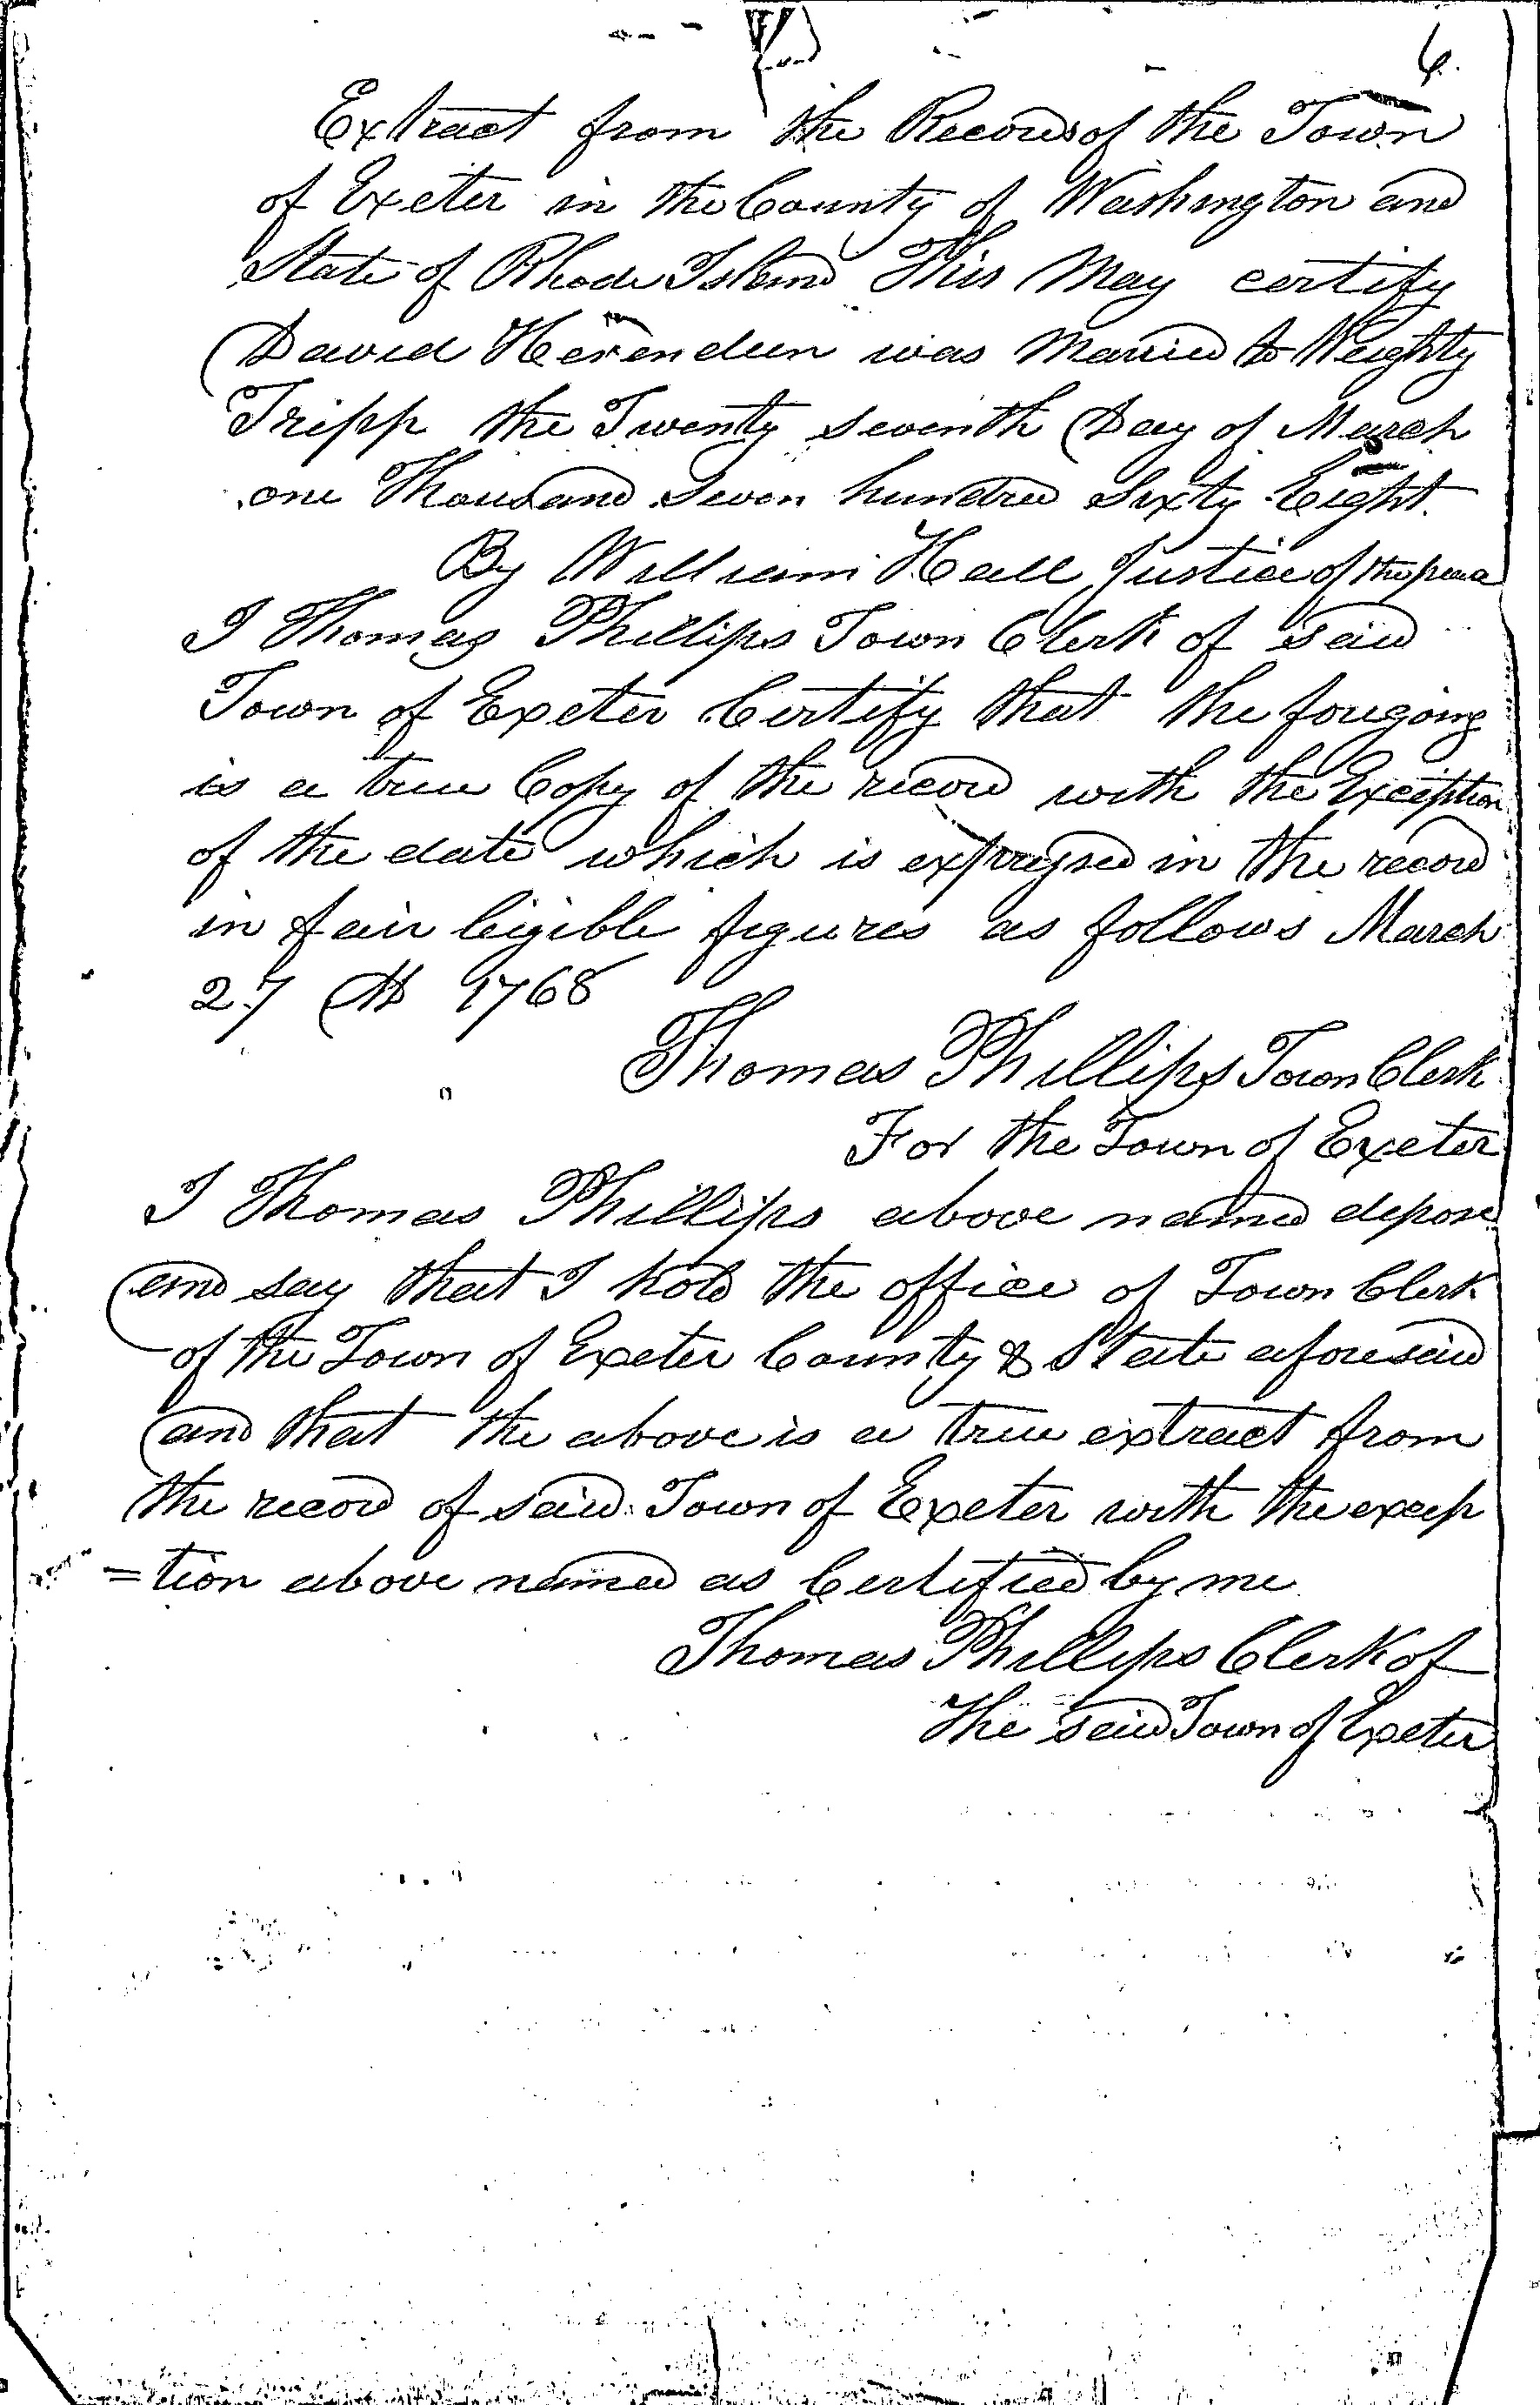 6.
Extract from the Records of the Town
of Exeter in the County of Washington and
State of Rhode Island This May certify
David Herendeen was Married to Weighty
Tripp the Twenty seventh Day of March
one Thousand Seven hundred Sixty Eight.
By William Hall Justice of the peace
I Thomas Phillips Town Clerk of said
Town of Exeter Certify that the foregoing
is a true Copy of the record with the Exception
of the date which is expressed in the record
in fair legible figures as follows March
27 AD 1768
Thomas Phillips Town Clerk
For the Town of Exeter
I Thomas Phillips above named depose
and say that I hold the office of Town Clerk
of the Town of Exeter County & State aforesaid
and that the above is a true extract from
the record of said Town of Exeter with the excep
=tion above named as Certified by me
Thomas Phillips Clerk of
The said Town of Exeter